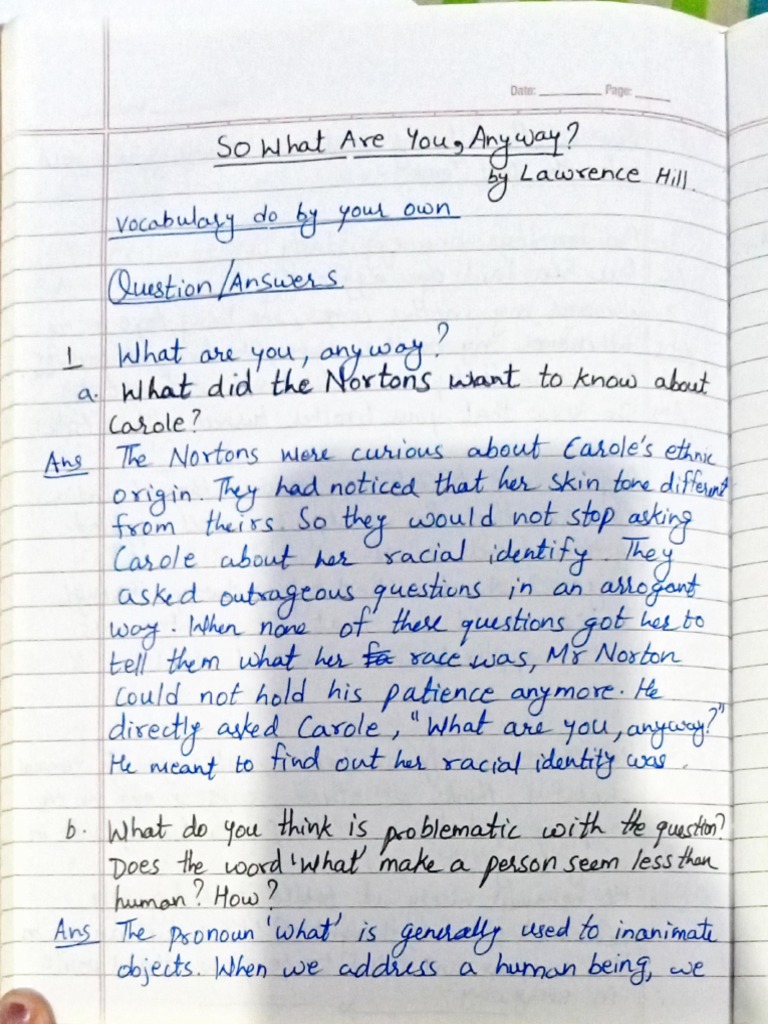 Date: ________ Page: _____
So What Are You, Anyway?
by Lawrence Hill.
Vocabulary do by your own
Question/Answers
1 What are you, anyway?
a. What did the Nortons want to know about
Carole?
Ans The Nortons were curious about Carole's ethnic
origin. They had noticed that her skin tone different
from theirs. So they would not stop asking
Carole about her racial identify. They
asked outrageous questions in an arrogant
way. When none of these questions got her to
tell them what her race was, Mr Norton
could not hold his patience anymore. He
directly asked Carole, "What are you, anyway?"
He meant to find out her racial identity was.
b. What do you think is problematic with the question?
Does the word 'what' make a person seem less than
human? How?
Ans The pronoun 'what' is generally used to inanimate
objects. When we address a human being, we